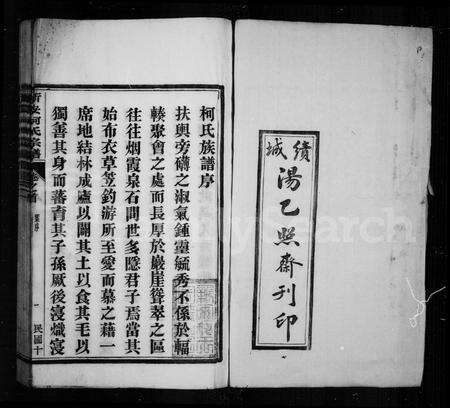 績城
湯乙照齋刊印
柯氏族譜序
扶輿旁礴之淑氣鍾靈毓秀不係於輻
輳聚會之處而長厚於巖崖聳翠之區
往往烟霞泉石間世多隱君子焉當其
始布衣草笠釣游所至愛而慕之藉一
席地結林成廬以闢其土以食其毛以
獨善其身而蕃育其子孫厥後寖熾寖
柯氏宗譜
卷之首
一
民國十